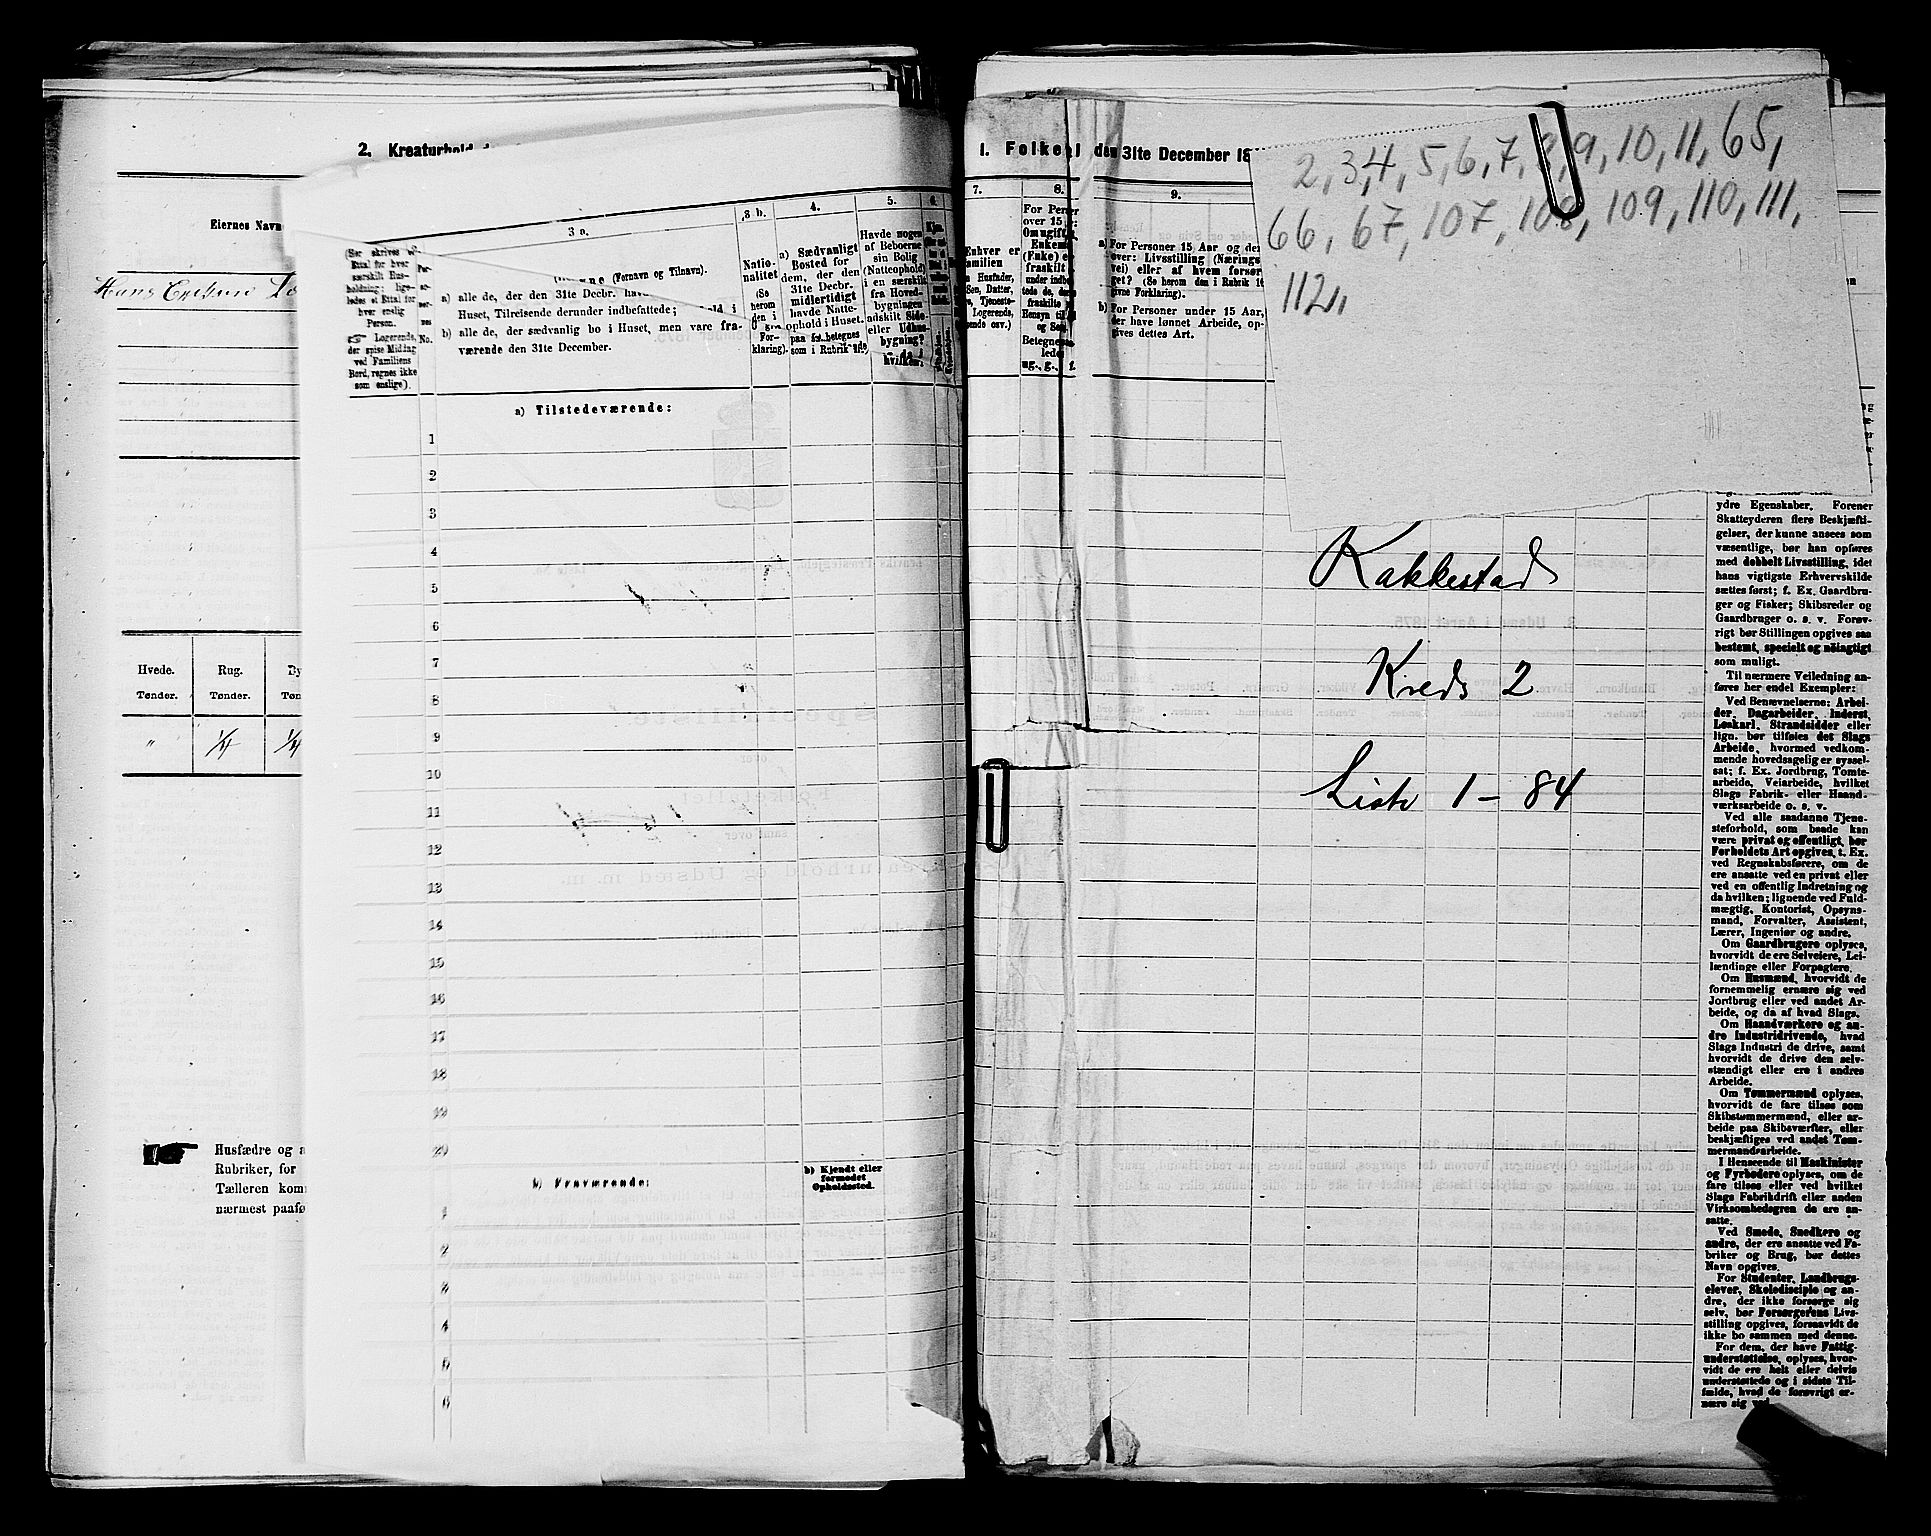 2. Kreaturhold
Eiernes Navn
Hans
Hvede. Rug. By
Tønder. Tønder. Tøn
" 1/4 1/4
Husfædre og a
Rubriker, for
Tælleren kom
nærmest paafø
3 a. 3 b. 4. 5. 6.
(Her skrives et
Ettal for hver
særskilt Hus-
holdning; lige-
ledes et Ettal for
hver enslig
Person.
Logerende,
der spise Middag
ved Familiens
Bord, regnes ikke
som enslige).
No.
(Fornavn og Tilnavn).
a) alle de, der den 31te Decbr. hav
Huset, Tilreisende derunder indbefattede;
b) alle de, der sædvanlig bo i Huset, men vare fra-
værende den 31te December.
Natio-
nalitet
(Se
herom
den i
For-
klaring).
a) Sædvanligt
Bosted for
dem, der den
31te Decbr.
midlertidigt
havde Natte-
ophold i Huset.
som i Rubrik
Havde nogen
af Beboerne
sin Bolig
(Natteophold)
i en særskilt
fra Hoved-
bygningen
adskilt Side-
eller Udhus-
bygning?
a) Tilstedeværende:
1
2
3
4
5
6
7
8
9
10
11
12
13
14
15
16
17
18
19
20
b) Fraværende:
b) Kjendt eller
formodet
Opholdssted.
1
2
3
4
5
6
1. Folket den 31te December 18
7. 8. 9.
Enhver er
amilien
Husfader,
Søn, Datter,
Tjeneste-
Logerende,
ende osv.)
For Perso
over 15
Om ugift
Enkem
(Enke) e
fraskilt
ug., g., f.
a) For Personer 15 Aar og der-
over: Livsstilling (Nærings-
vei) eller af hvem forsør-
get? (Se herom den i Rubrik 16
givne Forklaring).
b) For Personer under 15 Aar,
der have lønnet Arbeide, op-
gives dettes Art.
2, 3, 4, 5, 6, 7, 8, 9, 10, 11, 65,
66, 67, 107, 108, 109, 110, 111,
112,
Kakkestad
Kreds 2
Liste 1 - 84
ydre Egenskaber. Forener
Skatteyderen flere Beskjæfti-
gelser, der kunne ansees som
væsentlige, bør han opføres
med dobbelt Livsstilling, idet
hans vigtigste Erhvervskilde
sættes først; f. Ex. Gaardbru-
ger og Fisker; Skibsreder og
Gaardbruger o. s. v. Forøv-
rigt bør Stillingen opgives saa
bestemt, specielt og nøiagtigt
som muligt.
Til nærmere Veiledning an-
føres her endel Exempler:
Ved Benævnelserne: Arbei-
der, Dagarbeider, Inderst,
Løskarl, Strandsidder eller
lign. bør tilføies det Slags
Arbeide, hvormed vedkom-
mende hovedsagelig er syssel-
sat; f. Ex. Jordbrug, Tomte-
arbeide, Veiarbeide, hvilket
Slags Fabrik- eller Haand-
værksarbeide o. s. v.
Ved alle saadanne Tjene-
steforhold, som baade kan
være privat og offentligt, bør
Forholdets Art opgives, t. Ex.
ved Regnskabsførere, om de
ere ansatte ved en privat eller
ved en offentlig Indretning og
da hvilken; lignende ved Fuld-
mægtig, Kontorist, Opsyns-
mand, Forvalter, Assistent,
Lærer, Ingeniør og andre.
Om Gaardbrugere oplyses,
hvorvidt de ere Selveiere, Lei-
lændinge eller Forpagtere.
Om Husmænd, hvorvidt de
fornemmelig ernære sig ved
Jordbrug eller ved andet Ar-
beide, og da af hvad Slags.
Om Haandværkere og an-
dre Industridrivende, hvad
Slags Industri de drive, samt
hvorvidt de drive den selv-
stændigt eller ere i andres
Arbeide.
Om Tømmermænd oplyses,
hvorvidt de fare tilsøs som
Skibstømmermænd, eller ar-
beide paa Skibsværfter, eller
beskjæftiges ved andet Tøm-
mermandsarbeide.
I Henseende til Maskinister
og Fyrbødere oplyses, om de
fare tilsøs eller ved hvilket
Slags Fabrikdrift eller anden
Virksomhedsgren de ere an-
satte.
Ved Smede, Snedkere og
andre, der ere ansatte ved Fa-
briker og Brug, bør dettes
Navn opgives.
For Studenter, Landbrugs-
elever, Skoledisciple og an-
dre, der ikke forsørge sig
selv, bør Forsørgerens Livs-
stilling opgives, forsaavidt de
ikke bo sammen med denne.
For dem, der have Fattig-
understøttelse, oplyses, hvor-
vidt de ere helt eller delvis
understøttede og i sidste Til-
fælde, hvad de forøvrigt er-
nære sig ved.